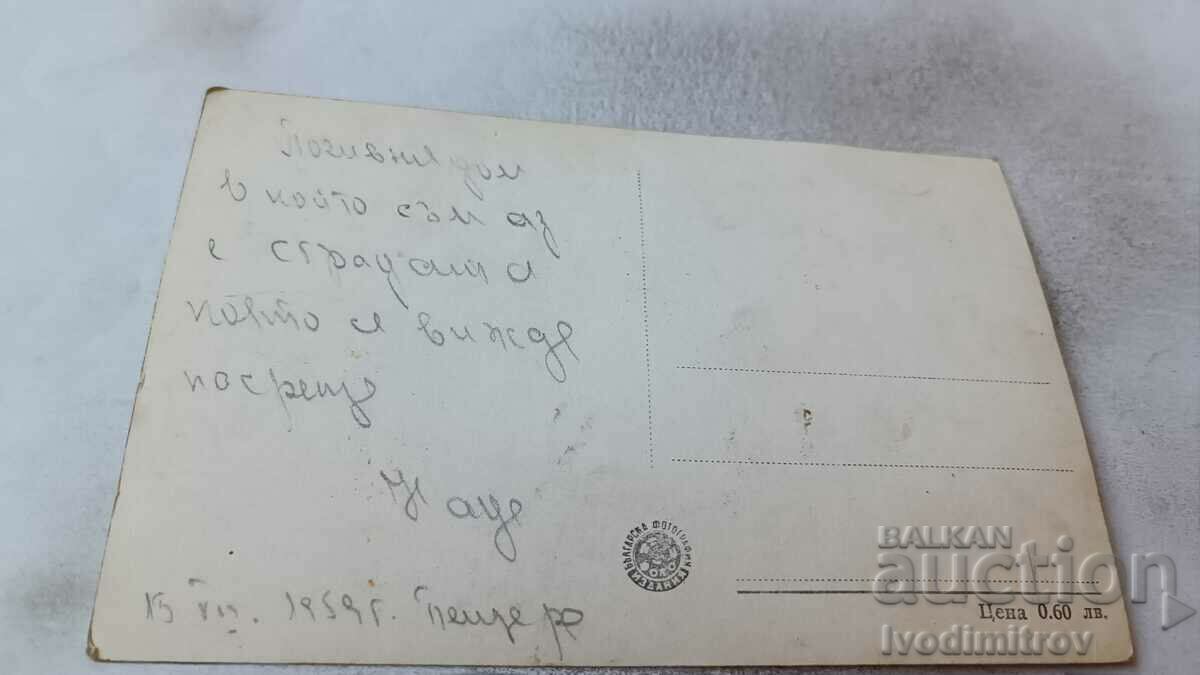 Почивния дом
в който съм аз
е сградата
която се вижда
насреща
15 VII. 1959 г. Пещера
БЪЛГАРСКА ФОТОГРАФИЯ
ИЗДАНИЯ
Цена 0.60 лв.
BALKAN
auction
Ivodimitrov